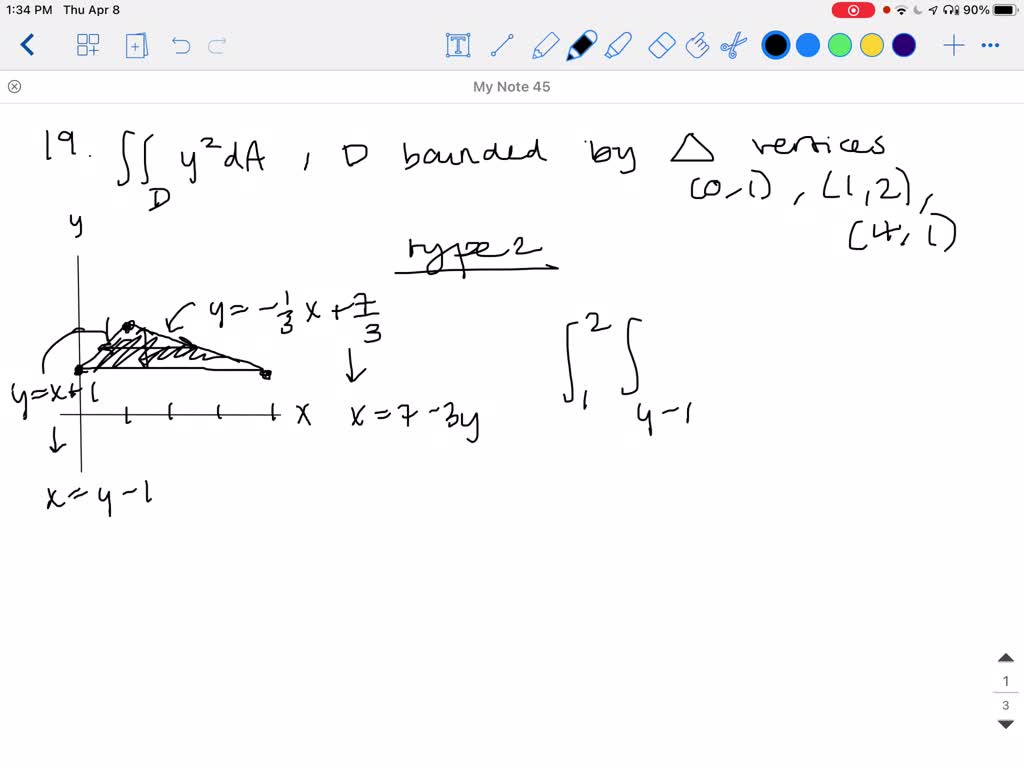 1:34 PM Thu Apr 8
90%
My Note 45
19. ∬_D y² dA , D bounded by △ vertices
(0,1) , (1,2) ,
(4,1)
y
Type 2
y = -1/3 x + 7/3
∫₁² ∫_{y-1}
y = x + 1
x
x = 7 - 3y
x = y - 1
1
3